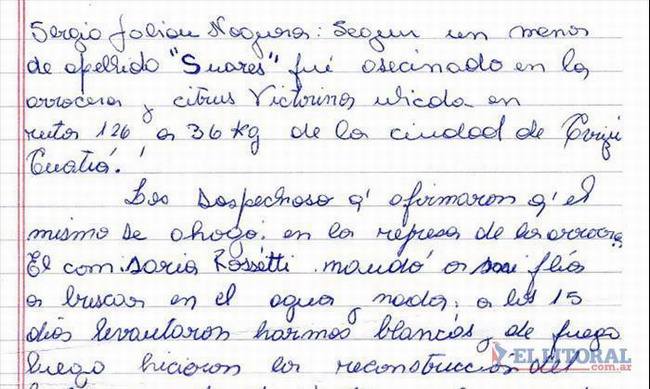 Sergio Julian Noguera: Segun un menor
de apellido "Suares" fué asecinado en la
arrocera y citrus Victorino ubicda en
ruta 126 a 36 kg de la ciudad de Curuzu
Cuatiá.
Los sospechoso q' afirmaron q' el
mismo se ahogó. en la represa de la arrocera
El comisaria Rossétti mandó a su flia
a buscar en el agua y nada, a los 15
dias levantaron harmas blancas y de fuego
luego hicieron la reconstruccion del
EL LITORAL
.com.ar